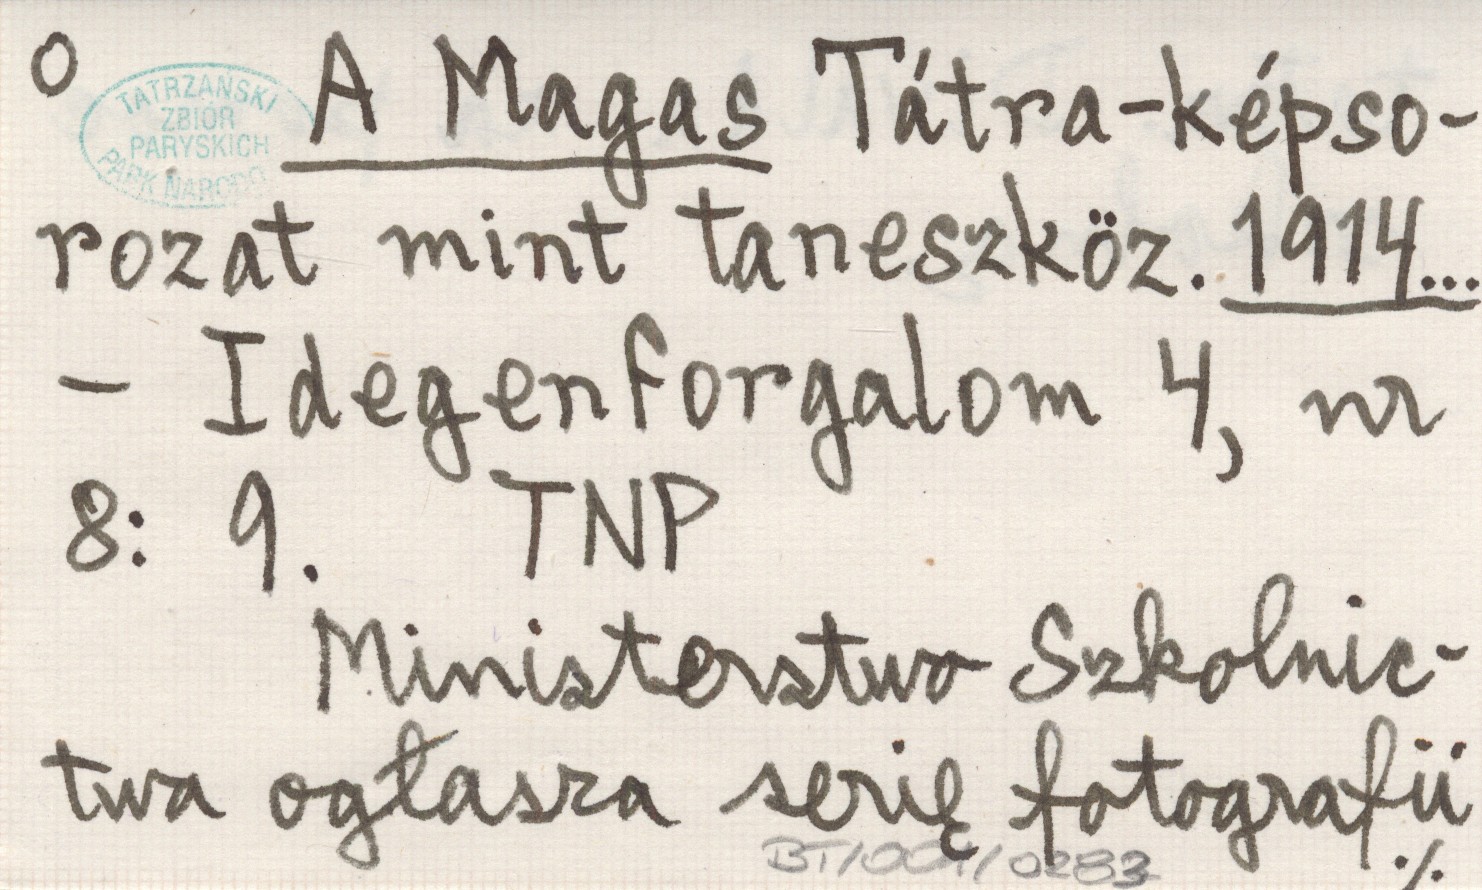 o
TATRZAŃSKI
ZBIÓR
PARYSKICH
PARK NARODO
A Magas Tátra-képso-
rozat mint taneszköz. 1914...
- Idegenforgalom 4, nr
8: 9. TNP
Ministerstwo Szkolnic-
twa ogłasza serię fotografii
BT/001/0283
./.